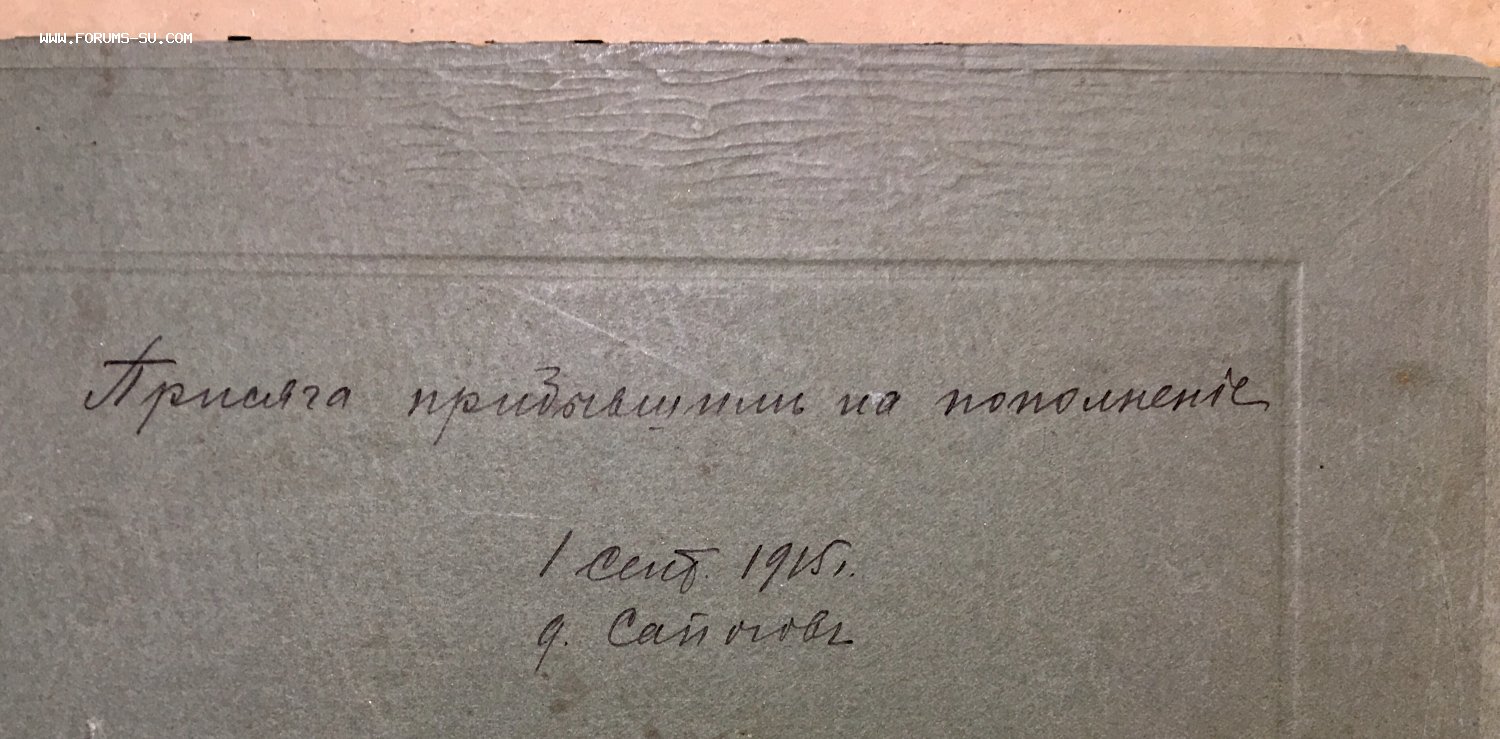 WWW.FORUMS-SU.COM
Присяга прибывшими на пополненіе
1 сент. 1915г.
д. Сапогов